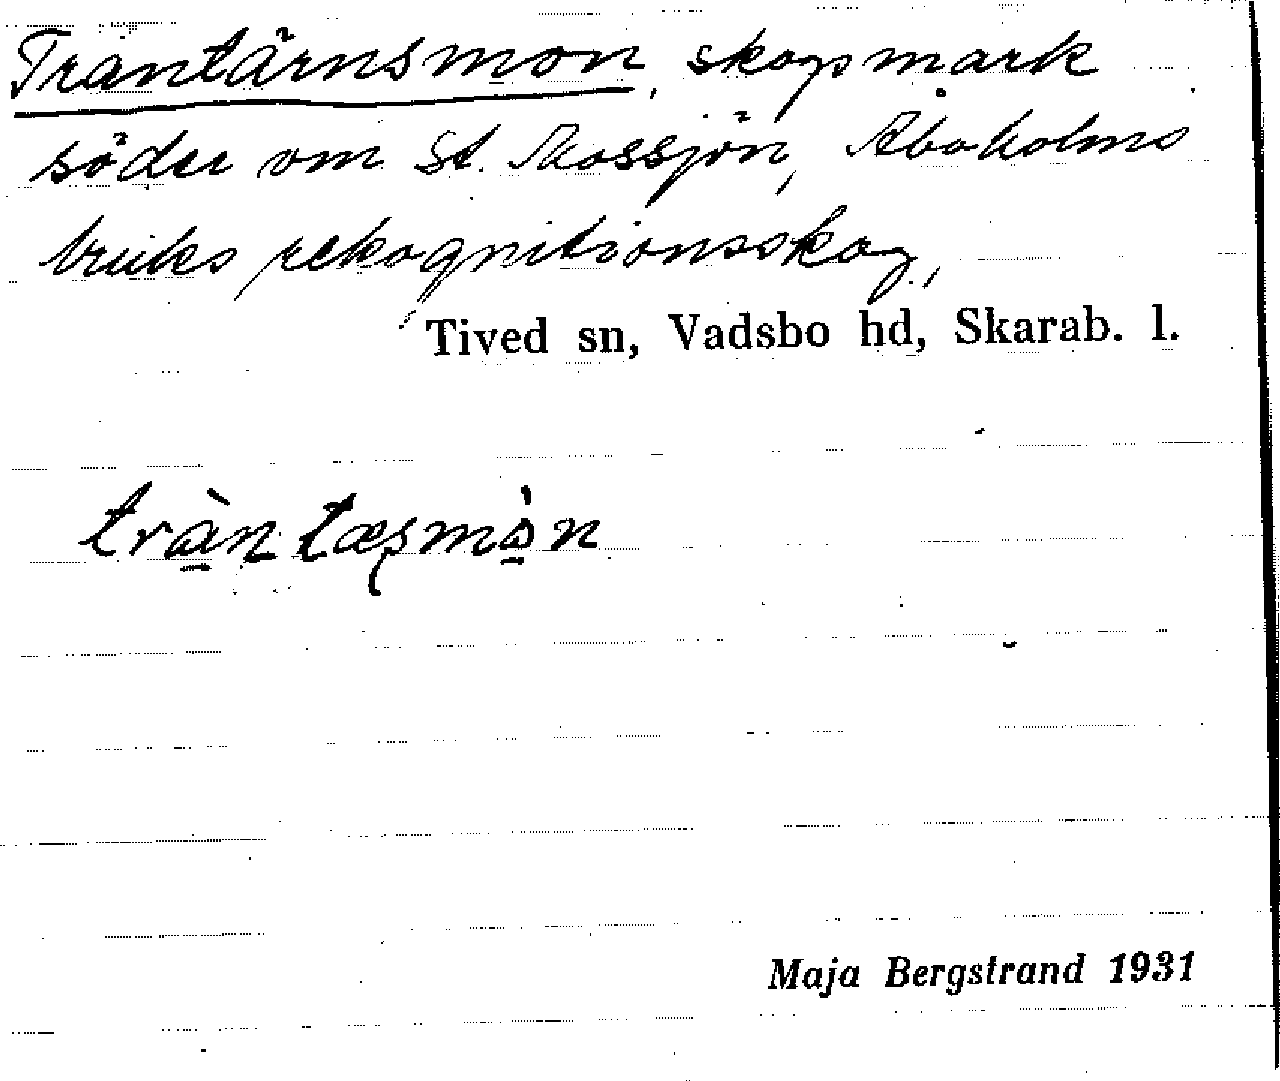 Trantärnsmon, skogsmark
söder om St. Mossjön, Aboholms
bruks rekognitionsskog,
Tived sn, Vadsbo hd, Skarab. l.
tràntæsmòn
Maja Bergstrand 1931